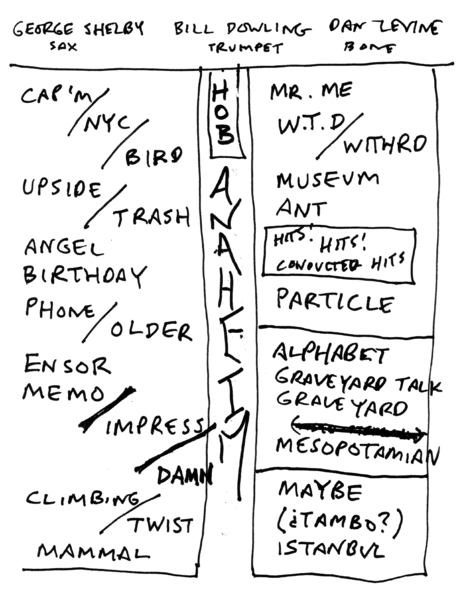 GEORGE SHELBY
SAX
BILL DOWLING
TRUMPET
DAN LEVINE
BONE
CAP'M/
NYC/
BIRD
UPSIDE/
TRASH
ANGEL
BIRTHDAY
PHONE/
OLDER
ENSOR
MEMO/
IMPRESS/
DAMN
CLIMBING/
TWIST
MAMMAL
HOB
ANAHEIM
MR. ME
W.T.D/
WITHRD
MUSEUM
ANT
HITS! HITS!
CONDUCTED HITS
PARTICLE
ALPHABET
GRAVEYARD TALK
GRAVEYARD
MESOPOTAMIAN
MAYBE
(¿TAMBO?)
ISTANBUL